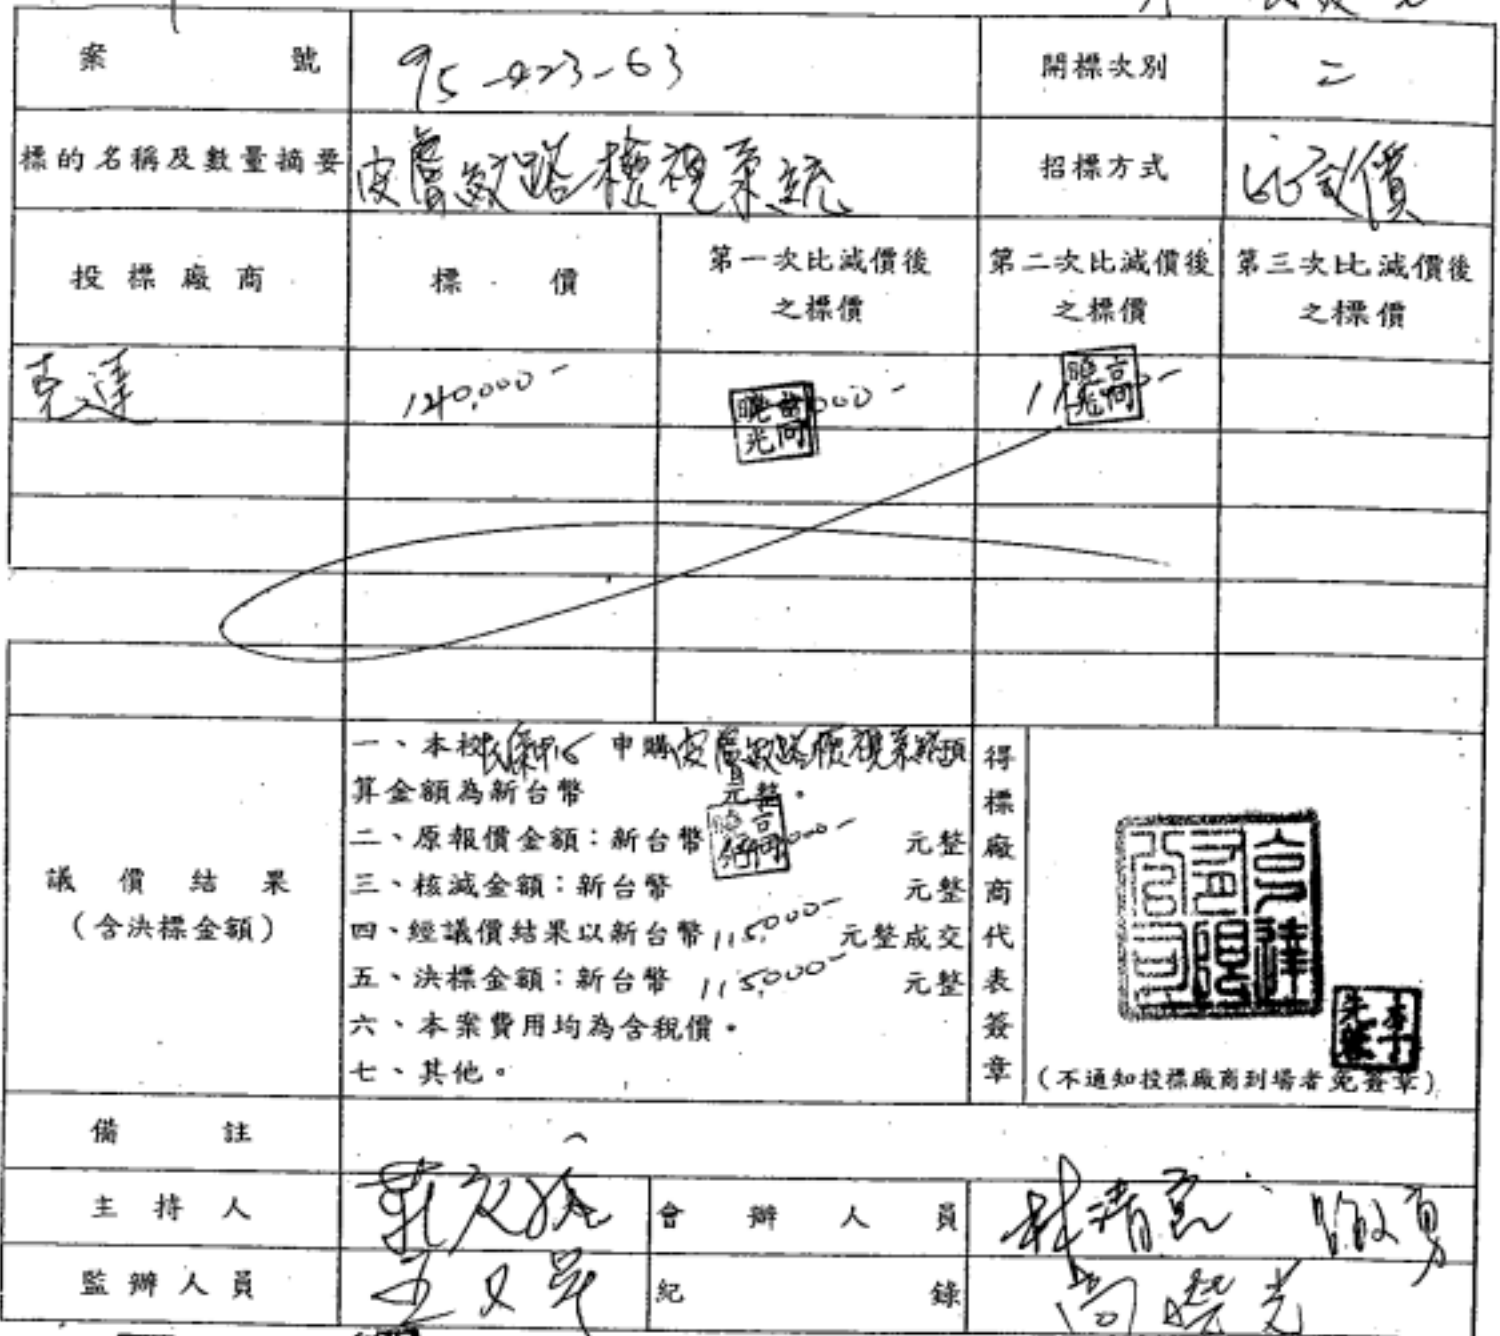 案號 95-423-63 開標次別 二
標的名稱及數量摘要 皮膚紋路檢視系統 招標方式 比議價
投標廠商 標價 第一次比減價後之標價 第二次比減價後之標價 第三次比減價後之標價
克達 140,000-
議價結果
(含決標金額)
一、本校 申購皮膚紋路檢視系統預
算金額為新台幣 元整。
二、原報價金額:新台幣 元整
三、核減金額:新台幣 元整
四、經議價結果以新台幣115,000-元整成交
五、決標金額:新台幣 115,000- 元整
六、本案費用均為含稅價。
七、其他。
得標廠商代表簽章
(不通知投標廠商到場者免簽章)
備註
主持人 會辦人員 林清亮
監辦人員 紀錄 尚曉光